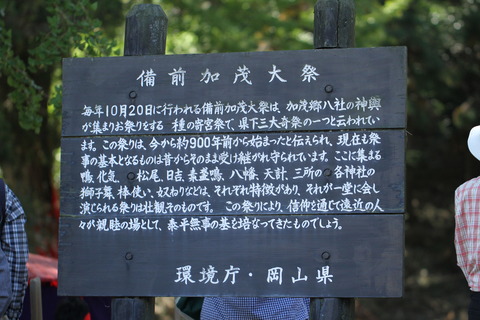 備前加茂大祭
毎年10月20日に行われる備前加茂大祭は、加茂郷八社の神輿
が集まりお祭りをする 種の寄宮祭で、県下三大奇祭の一つと云われてい
ます。この祭りは、今から約900年前から始まったと伝えられ、現在も祭
事の基本となるものは昔からそのまま受け継がれ守られています。ここに集まる
鴨、化気、 松尾、日吉、素盞鳴、八幡、天計、三所の 各神社の
獅子舞、棒使い、奴ねりなどは、それぞれ特徴があり、それが一堂に会し
演じられる祭りは壮観そのものです。この祭りにより、信仰を通じて遠近の人
々が親睦の場として、泰平無事の基を培なってきたものでしょう。
環境庁・岡山県